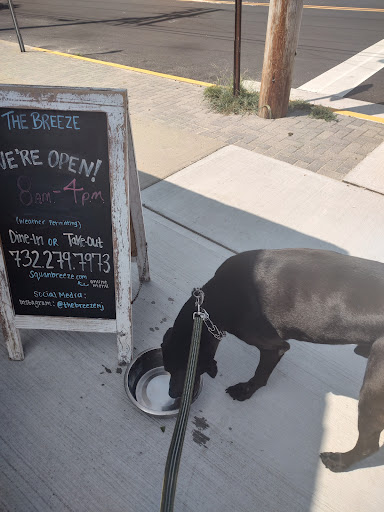 THE BREEZE
WE'RE OPEN!
8am-4pm
(Weather Permitting)
Dine-In OR Take-Out
732.279.7973
Squanbreeze.com
Social Media:
Instagram: @thebreezenj